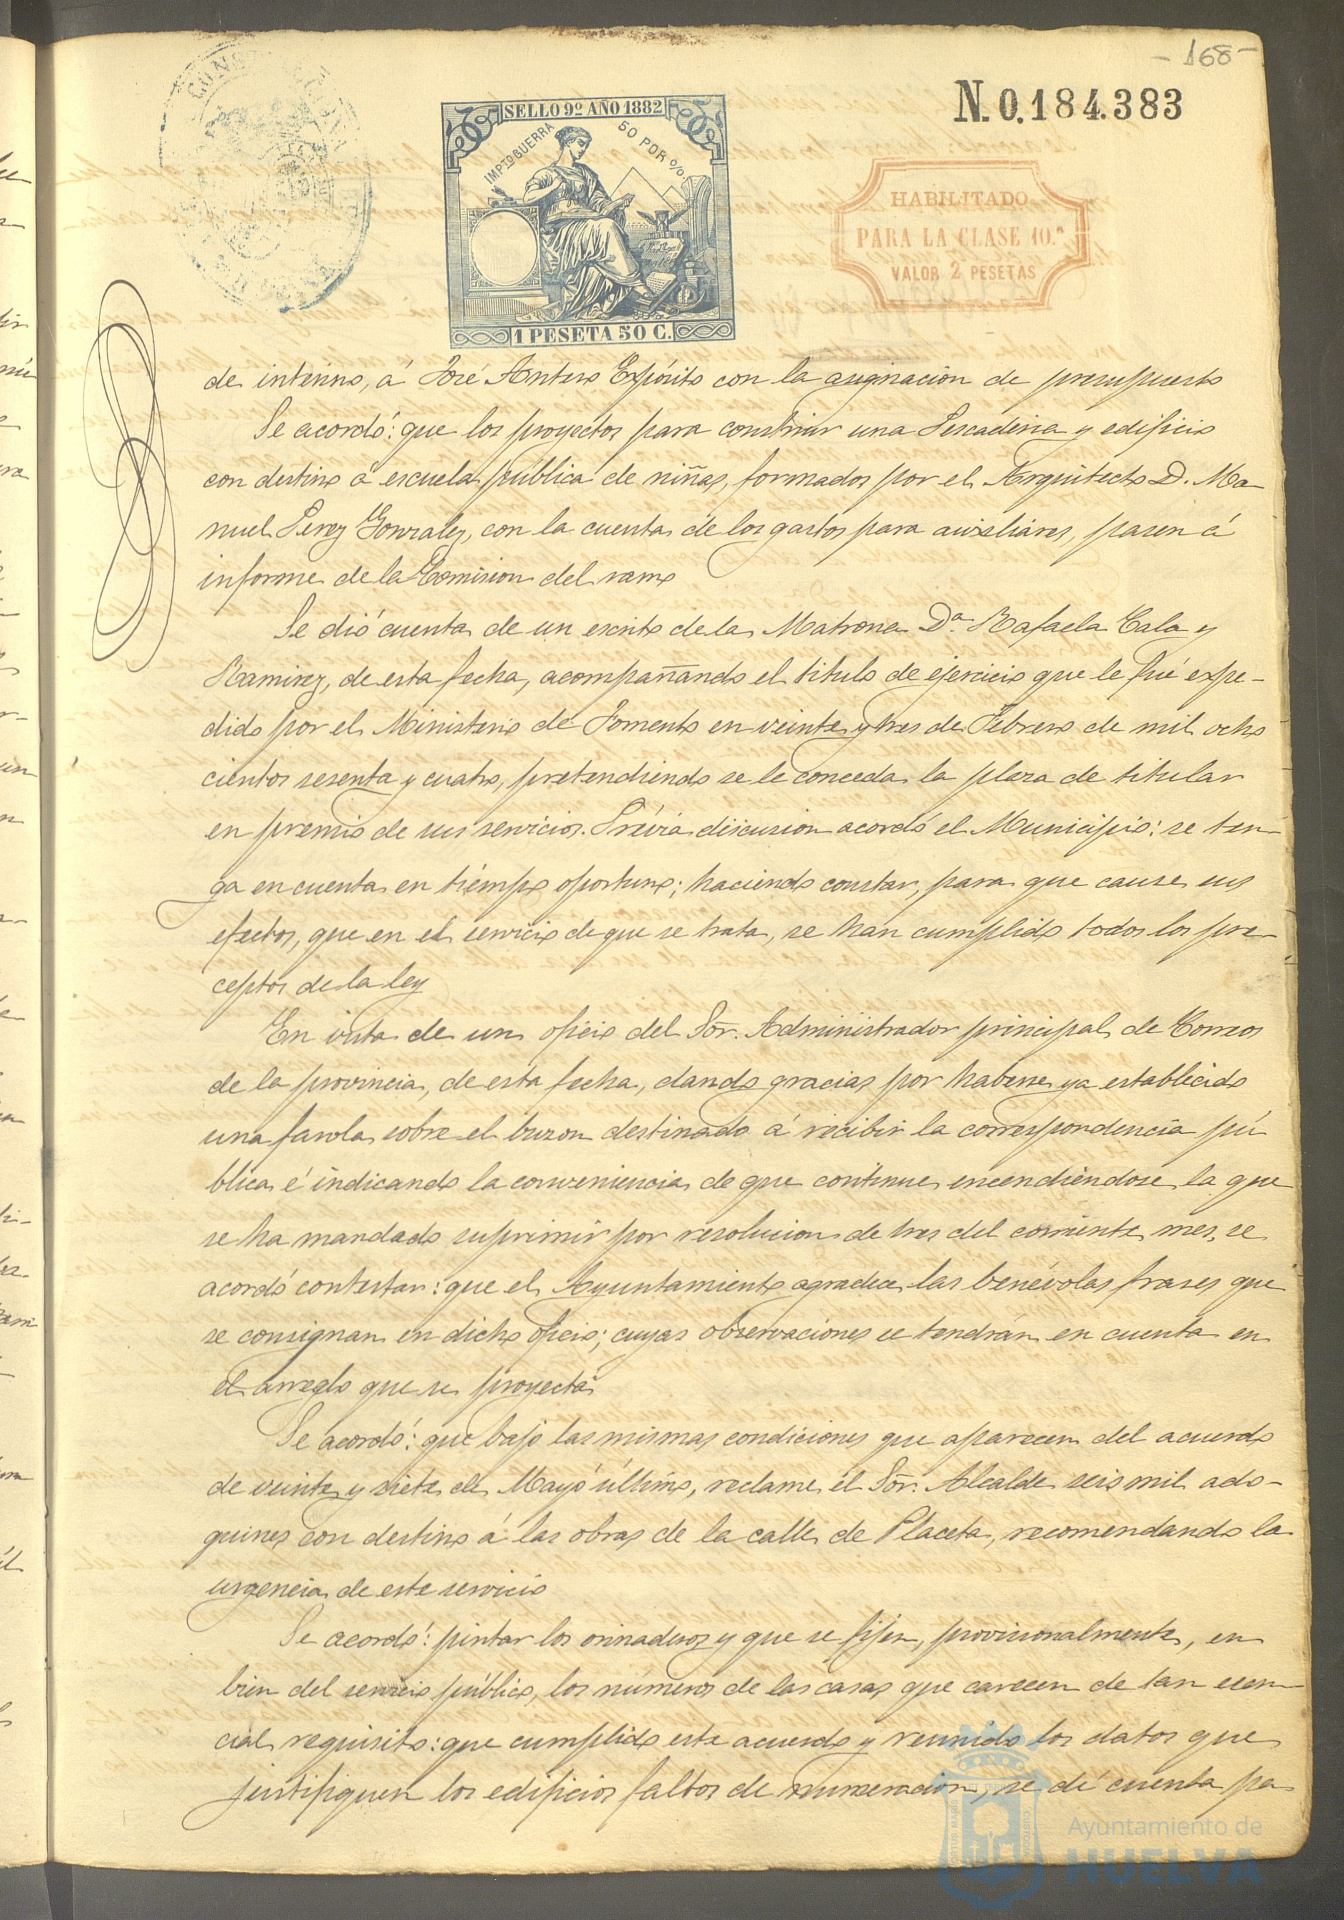 - 168 -
N. 0.184.383
SELLO 9º AÑO 1882
IMPTO GUERRA 50 POR %.
1 PESETA 50 C.
HABILITADO
PARA LA CLASE 10.ª
VALOR 2 PESETAS
de interino, á José Antero Expósito con la asignacion de presupuesto
Se acordó: que los proyectos para construir una Pescaderia y edificio
con destino á escuela pública de niñas, formados por el Arquitecto D. Ma-
nuel Perez Gonzalez, con la cuenta de los gastos para auxiliares, pasen á
informe de la Comision del ramo
Se dió cuenta de un escrito de la Matrona Dª. Rafaela Cala y
Ramirez, de esta fecha, acompañando el titulo de ejercicio que le fué expe-
dido por el Ministerio de Fomento en veinte y tres de Febrero de mil ocho
cientos sesenta y cuatro, pretendiendo se le conceda la plaza de titular
en premio de sus servicios. Prévia discusion acordó el Municipio: se ten-
ga en cuenta en tiempo oportuno; haciendo constar, para que cause sus
efectos, que en el servicio de que se trata, se han cumplido todos los pre-
ceptos de la ley
En vista de un oficio del Sor. Administrador principal de Correos
de la provincia, de esta fecha, dando gracias por haberse ya establecido
una farola sobre el buzon destinado á recibir la correspondencia pú
blica é indicando la conveniencia de que continue encendiendose la que
se ha mandado suprimir por resolucion de tres del corriente mes, se
acordó contestar: que el Ayuntamiento agradece las benévolas frases que
se consignan en dicho oficio; cuyas observaciones se tendrán en cuenta en
el arreglo que se proyecta
Se acordó: que bajo las mismas condiciones que aparecen del acuerdo
de veinte y siete de Mayo último, reclame el Sor. Alcalde seis mil ado-
quines con destino á las obras de la calle de Placeta, recomendando la
urgencia de este servicio
Se acordó: pintar los orinaderos y que se fijen, provisionalmente, en
bien del servicio público, los números de las casas que carecen de tan esen-
cial requisito: que cumplido este acuerdo y reunido los datos que
justifiquen los edificios faltos de numeracion, se dé cuenta pa-
Ayuntamiento de
HUELVA